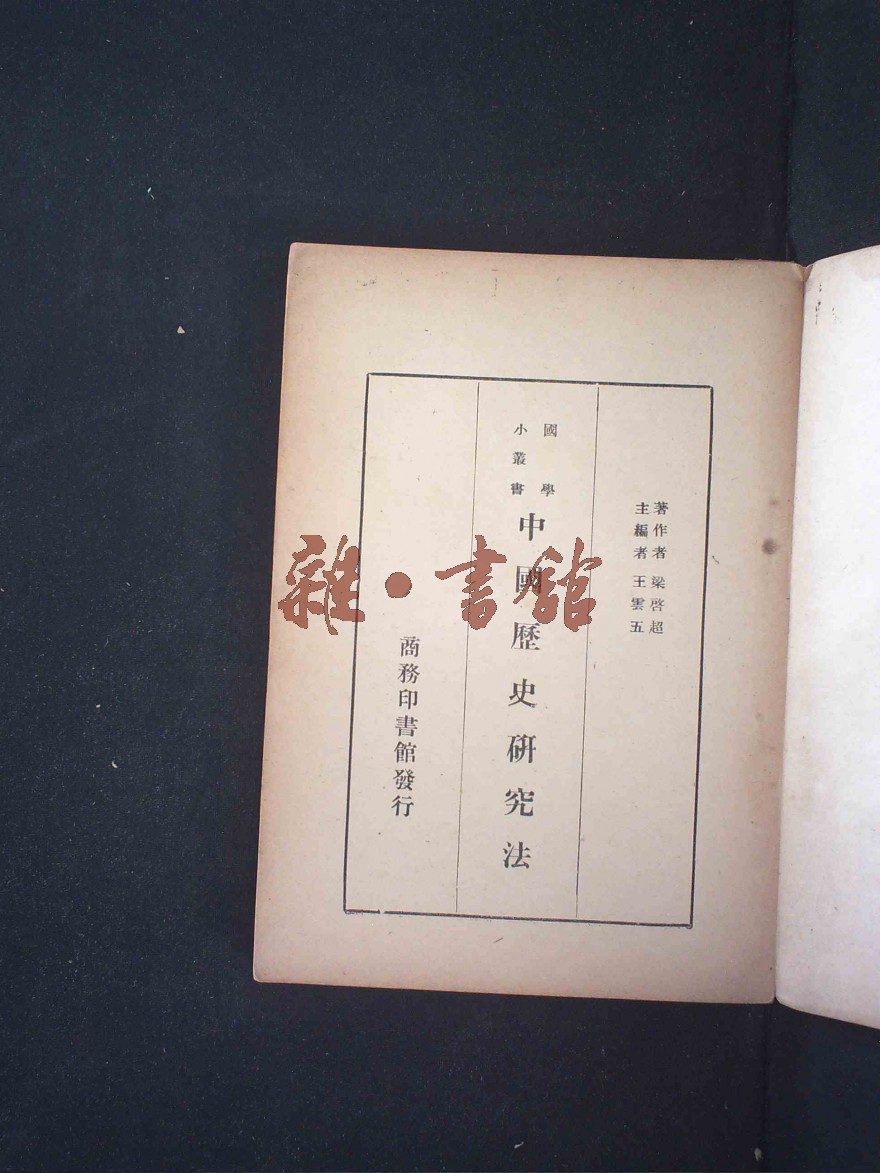 著作者 梁啓超
主編者 王雲五
國學
小叢書
中國歷史研究法
商務印書館發行
雜·書舘